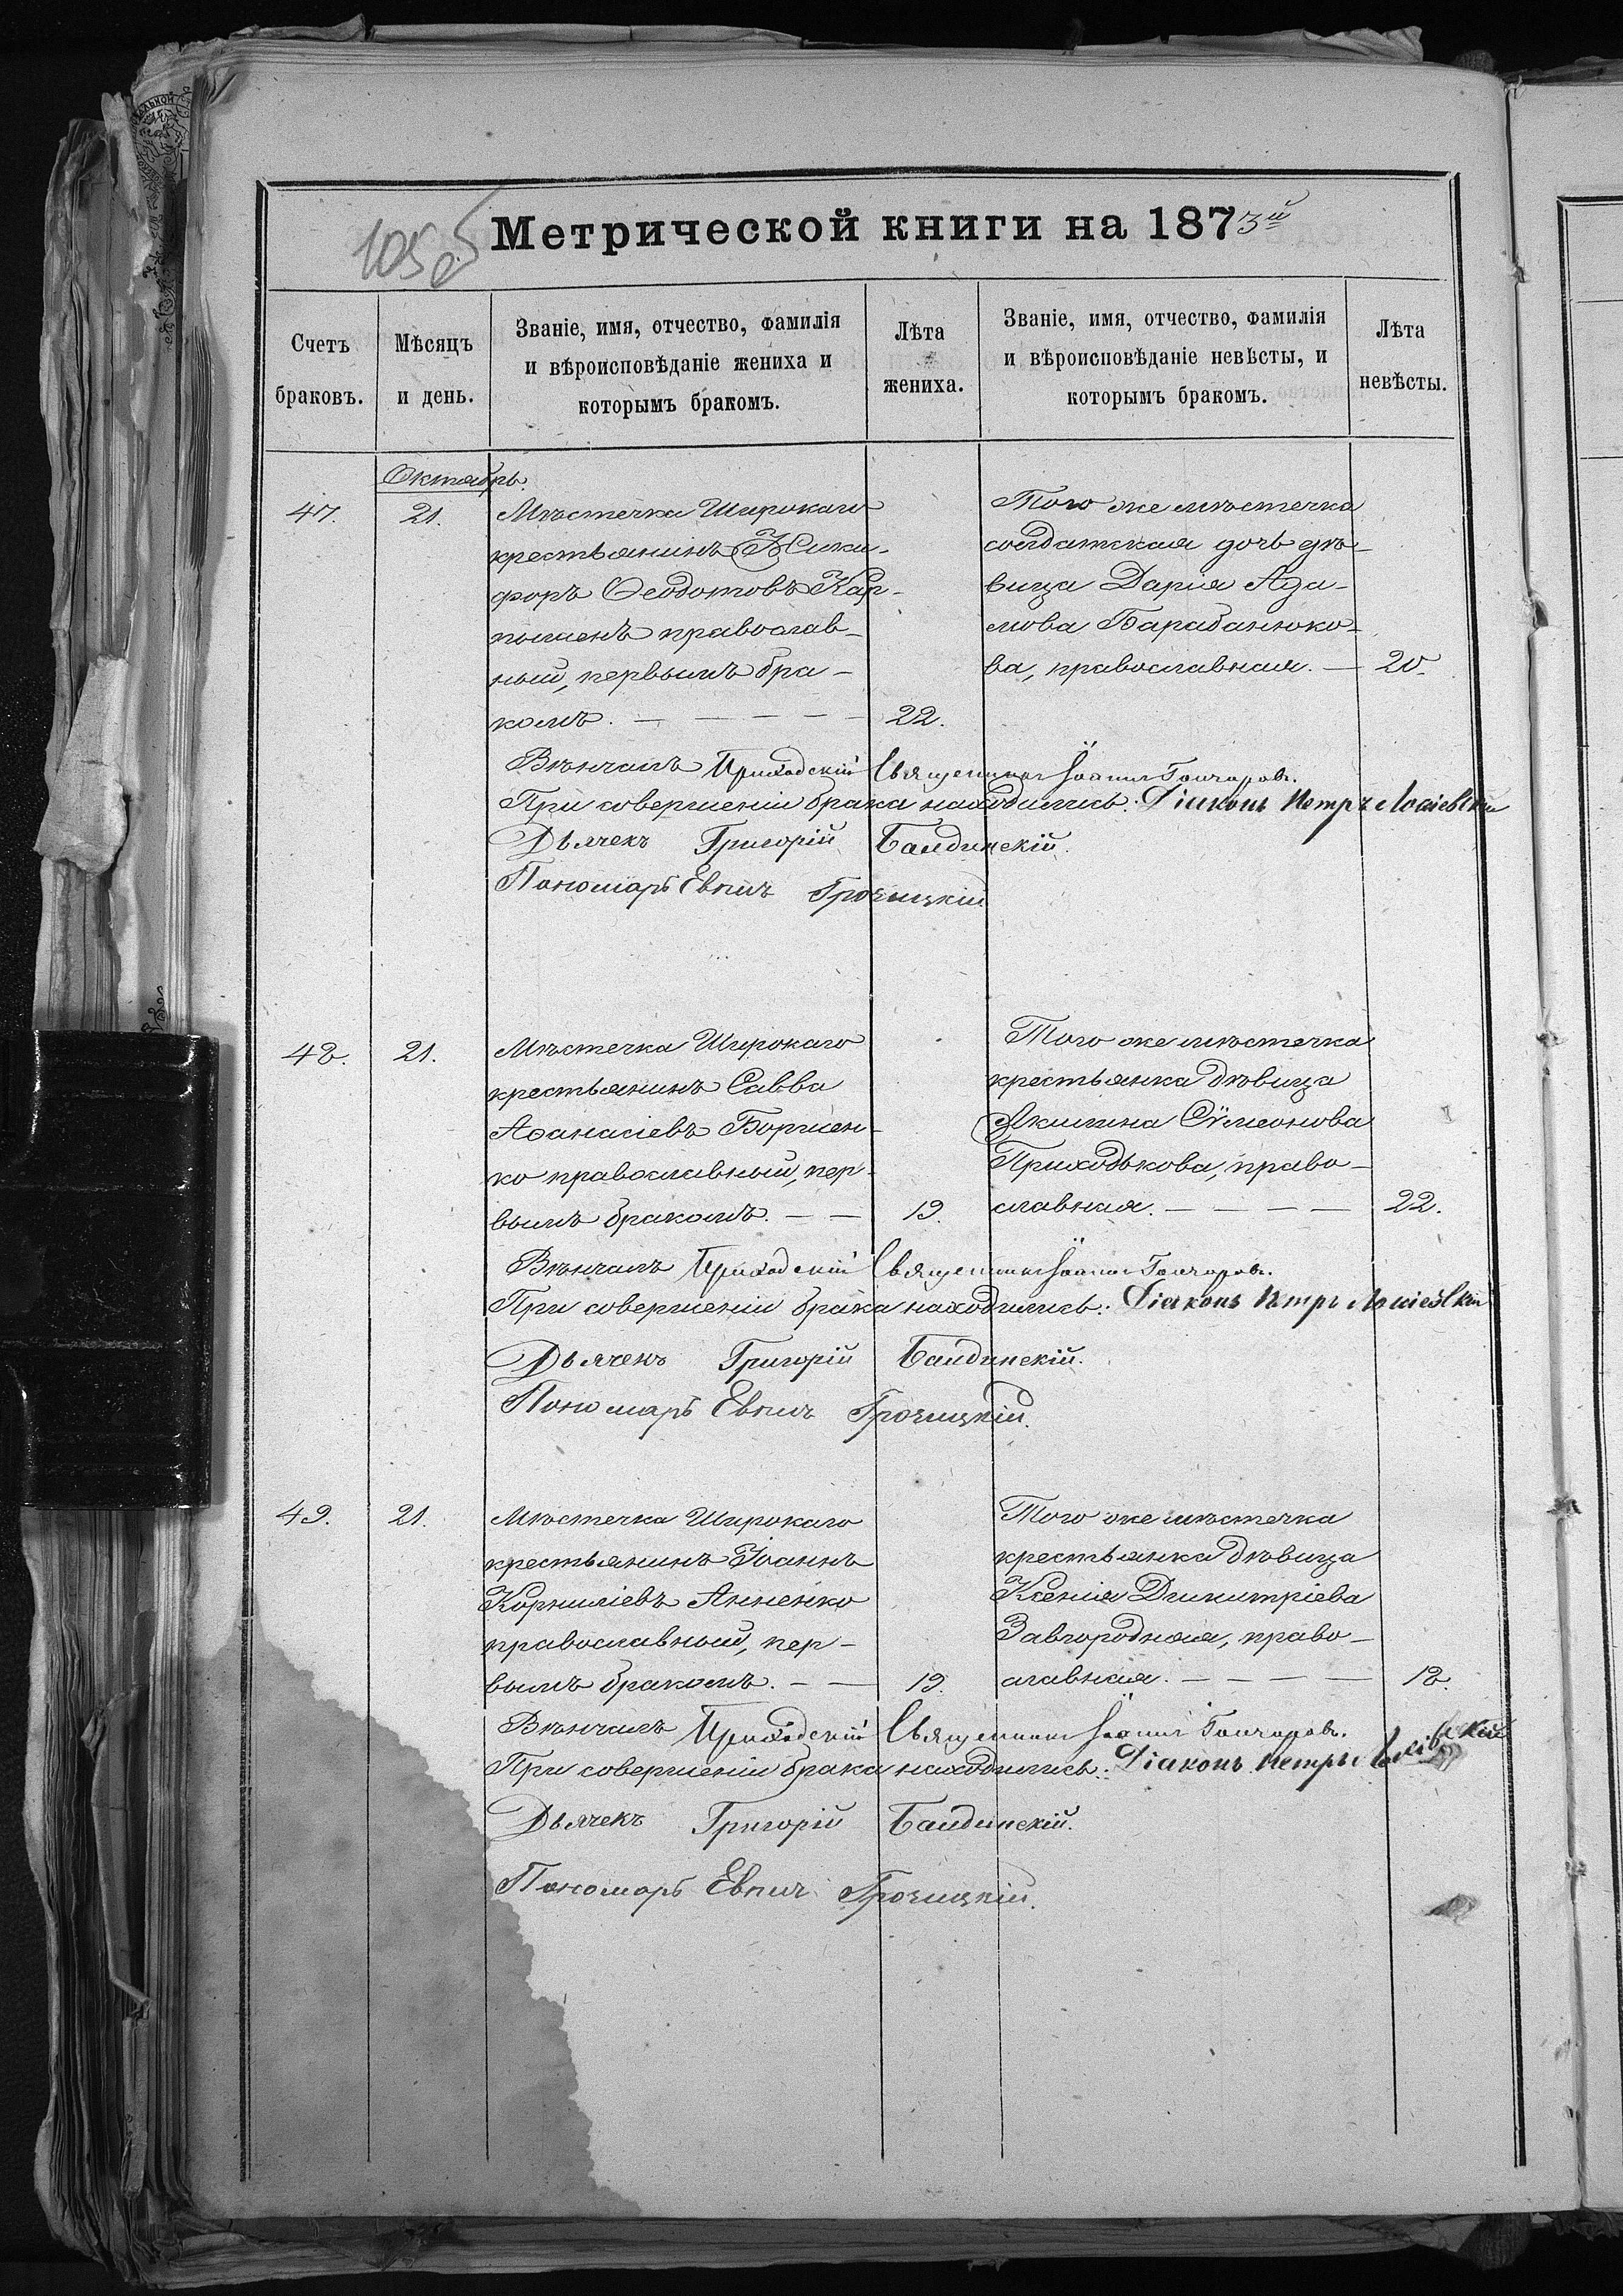 105 об
Метрической книги на 1873й
Счетъ браковъ.
Мѣсяцъ и день.
Званіе, имя, отчество, фамилія
и вѣроисповѣданіе жениха и
которымъ бракомъ.
Лѣта жениха.
Званіе, имя, отчество, фамилія
и вѣроисповѣданіе невѣсты, и
которымъ бракомъ.
Лѣта невѣсты.
Октябрь.
47.
21.
Мѣстечка Широкаго
крестьянинъ Ники-
форъ Ѳеодотовъ Кар-
православ-
ный, первымъ бра-
комъ. — — — — —
22.
Того же мѣстечка
солдатская дочь дѣ-
вица Дарія Ада-
мова Барабанюко-
ва, православная. —
20.
Вѣнчалъ Приходскій Священникъ Іоаннъ Гончаровъ.
При совершеніи брака находились: Діаконъ Петръ
Дьячекъ Григорій
Пономарь
48.
21.
Мѣстечка Широкаго
крестьянинъ Савва
Аѳанасіевъ Борщен-
ко православный, пер-
вымъ бракомъ. — —
19.
Того же мѣстечка
крестьянка дѣвица
Якилина Сѵмеонова
Приходькова, право-
славная. — — — —
22.
Вѣнчалъ Приходскій Священникъ Іоаннъ Гончаровъ.
При совершеніи брака находились: Діаконъ Петръ
Дьячекъ Григорій
Пономарь
49.
21.
Мѣстечка Широкаго
крестьянинъ Іоаннъ
Корниліевъ Анненко
православный, пер-
вымъ бракомъ. — —
19.
Того же мѣстечка
крестьянка дѣвица
Ксенія Димитріева
Завгородняя, право-
славная. — — — —
18.
Вѣнчалъ Приходскій Священникъ Іоаннъ Гончаровъ.
При совершеніи брака находились: Діаконъ Петръ
Дьячекъ Григорій
Пономарь